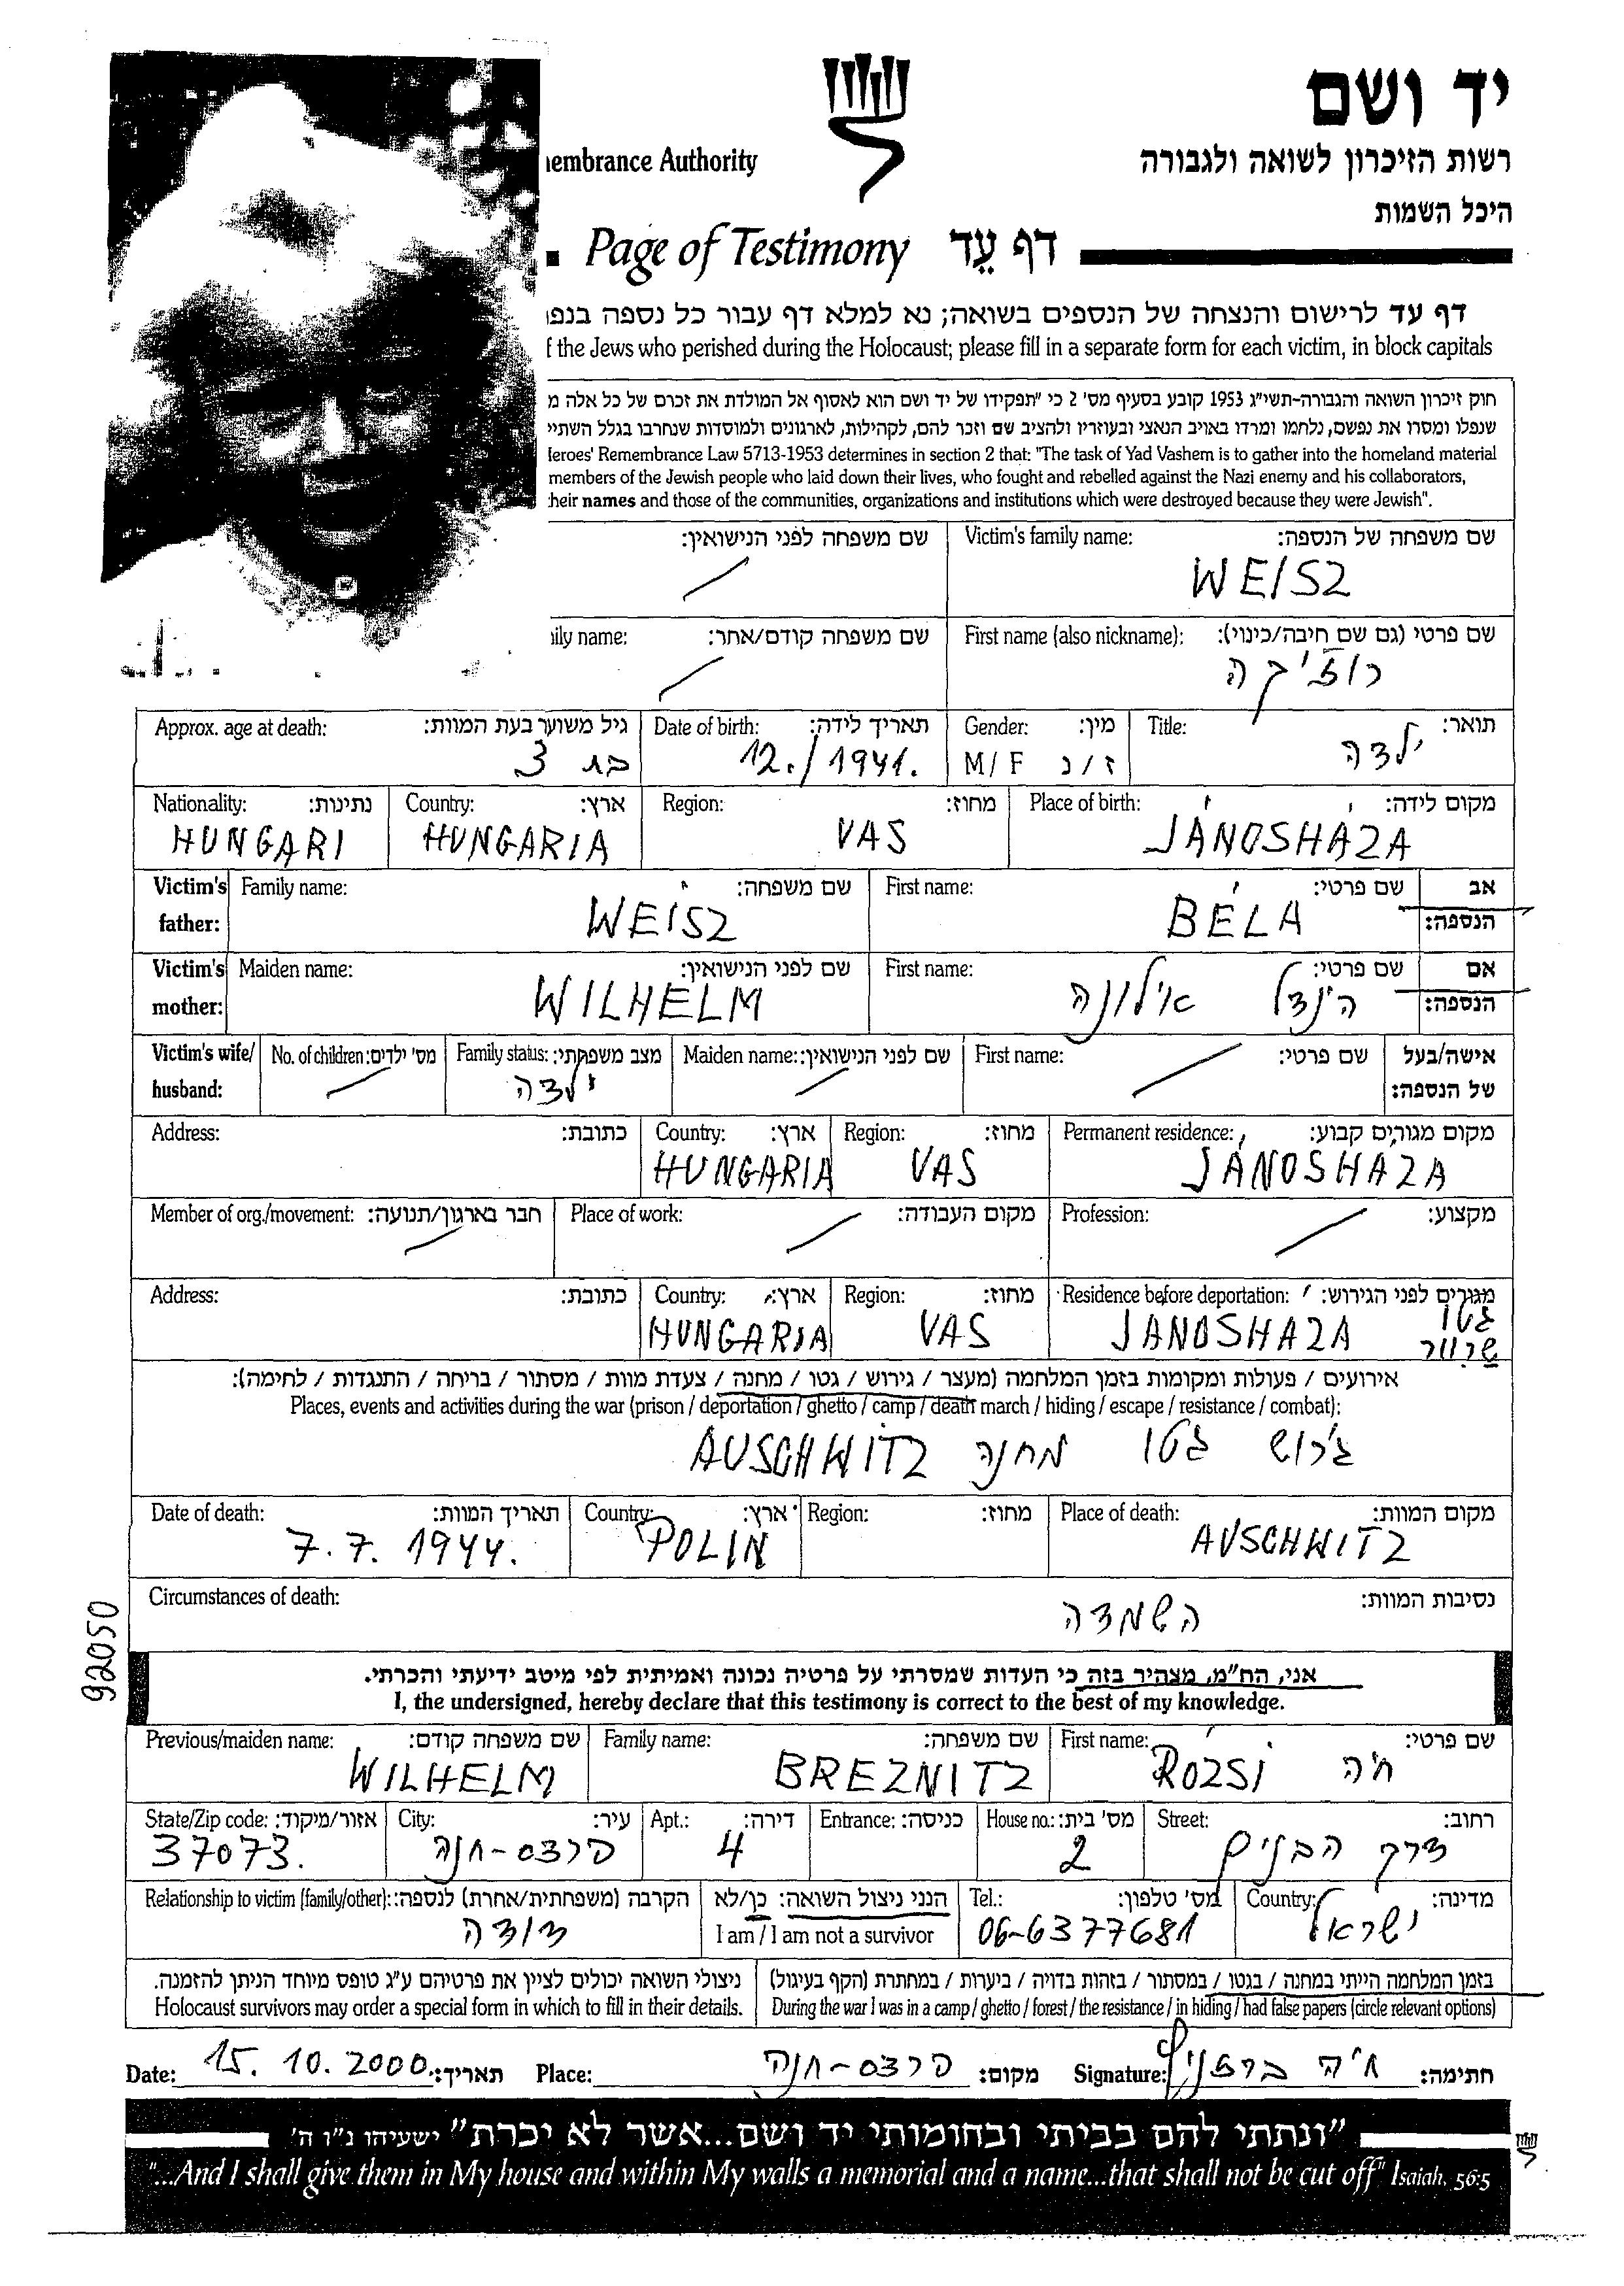 יד ושם
רשות הזיכרון לשואה ולגבורה
embrance Authority
היכל השמות
Page of Testimony דף עֵד
דף עד לרישום והנצחה של הנספים בשואה; נא למלא דף עבור כל נספה בנפ
the Jews who perished during the Holocaust; please fill in a separate form for each victim, in block capitals
חוק זיכרון השואה והגבורה-תשי"ג 1953 קובע בסעיף מס' 2 כי "תפקידו של יד ושם הוא לאסוף אל המולדת את זכרם של כל אלה מ
שנפלו ומסרו את נפשם, נלחמו ומרדו באויב הנאצי ובעוזריו ולהציב שם וזכר להם, לקהילות, לארגונים ולמוסדות שנחרבו בגלל השתיי
eroes' Remembrance Law 5713-1953 determines in section 2 that: "The task of Yad Vashem is to gather into the homeland material
members of the Jewish people who laid down their lives, who fought and rebelled against the Nazi enemy and his collaborators,
heir names and those of the communities, organizations and institutions which were destroyed because they were Jewish".
שם משפחה לפני הנישואין: Victim's family name: שם משפחה של הנספה:
WEISZ
ily name: שם משפחה קודם/אחר: First name (also nickname): שם פרטי (גם שם חיבה/כינוי):
רוז'יקה
Approx. age at death: גיל משוער בעת המוות: Date of birth: תאריך לידה: Gender: מין: Title: תואר:
בת 3 12./1941. M/F ז/נ ילדה
Nationality: נתינות: Country: ארץ: Region: מחוז: Place of birth: מקום לידה:
HUNGARI HUNGARIA VAS JÁNOSHÁZA
Victim's father: Family name: שם משפחה: First name: שם פרטי: אב הנספה:
WEISZ BÉLA
Victim's mother: Maiden name: שם לפני הנישואין: First name: שם פרטי: אם הנספה:
WILHELM הינדל אילונה
Victim's wife/ husband: No. of children: מס' ילדים: Family status: מצב משפחתי: Maiden name: שם לפני הנישואין: First name: שם פרטי: אישה/בעל של הנספה:
ילדה
Address: כתובת: Country: ארץ: Region: מחוז: Permanent residence: מקום מגורים קבוע:
HUNGARIA VAS JÁNOSHAZA
Member of org./movement: חבר בארגון/תנועה: Place of work: מקום העבודה: Profession: מקצוע:
Address: כתובת: Country: ארץ: Region: מחוז: Residence before deportation: מגורים לפני הגירוש:
HUNGARIA VAS JANOSHAZA גטו
שרוור
אירועים / פעולות ומקומות בזמן המלחמה (מעצר / גירוש / גטו / מחנה / צעדת מוות / מסתור / בריחה / התנגדות / לחימה):
Places, events and activities during the war (prison / deportation / ghetto / camp / death march / hiding / escape / resistance / combat):
גירוש גטו מחנה AUSCHWITZ
Date of death: תאריך המוות: Country: ארץ: Region: מחוז: Place of death: מקום המוות:
7.7. 1944. POLIN AUSCHWITZ
Circumstances of death: נסיבות המוות:
השמדה
92050
אני, הח"מ, מצהיר בזה כי העדות שמסרתי על פרטיה נכונה ואמיתית לפי מיטב ידיעתי והכרתי.
I, the undersigned, hereby declare that this testimony is correct to the best of my knowledge.
Previous/maiden name: שם משפחה קודם: Family name: שם משפחה: First name: שם פרטי:
WILHELM BREZNITZ ROZSI חיה
State/Zip code: אזור/מיקוד: City: עיר: Apt.: דירה: Entrance: כניסה: House no.: מס' בית: Street: רחוב:
37073. פרדס-חנה 4 2 דרך הבנים
Relationship to victim (family/other): הקרבה (משפחתית/אחרת) לנספה: הנני ניצול השואה: כן/לא Tel.: מס' טלפון: Country: מדינה:
דודה I am / I am not a survivor 06-6377681 ישראל
ניצולי השואה יכולים לציין את פרטיהם ע"ג טופס מיוחד הניתן להזמנה. בזמן המלחמה הייתי במחנה / בגטו / במסתור / בזהות בדויה / ביערות / במחתרת (הקף בעיגול)
Holocaust survivors may order a special form in which to fill in their details. During the war I was in a camp / ghetto / forest / the resistance / in hiding / had false papers (circle relevant options)
Date: 15. 10. 2000. תאריך: Place: פרדס-חנה מקום: Signature: חיה ברזניץ חתימה:
"ונתתי להם בביתי ובחומותי יד ושם...אשר לא יכרת" ישעיהו נ"ו ה'
"...And I shall give them in My house and within My walls a memorial and a name...that shall not be cut off" Isaiah, 56:5